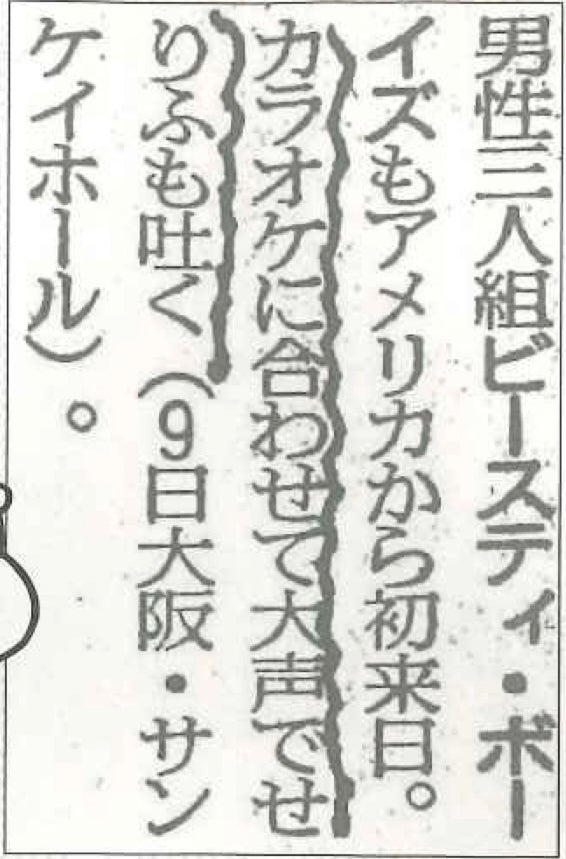 男性三人組ビースティ・ボー
イズもアメリカから初来日。
カラオケに合わせて大声でせ
りふも吐く（9日大阪・サン
ケイホール）。